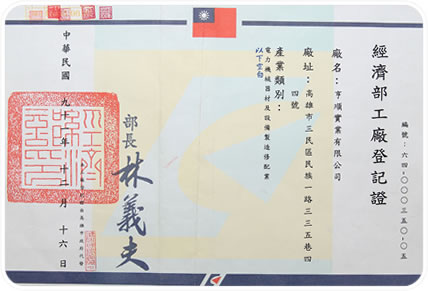 經濟部工廠登記證
編號：六四－〇〇〇三五〇－〇五
廠名：亨順實業有限公司
廠址：高雄市三民區民族一路三三五巷四
四號
產業類別：
電力機械器材及設備製造修配業
以下空白
部長 林義夫
中華民國 九十一年 十二月 十六日